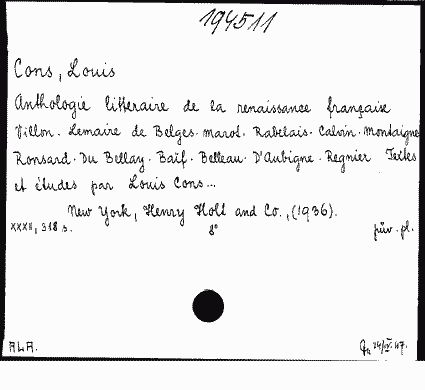 194511
Cons, Louis
Anthologie littéraire de la renaissance française
Villon. Lemaire de Belges. Marot. Rabelais. Calvin. Montaigne
Ronsard. Du Bellay. Baïf. Belleau. D'Aubigne. Regnier Textes
et études par Louis Cons...
New York, Henry Holt and Co., (1936).
XXXII, 318 s. 8° pův. pl.
A.L.A. 24/IV.47.